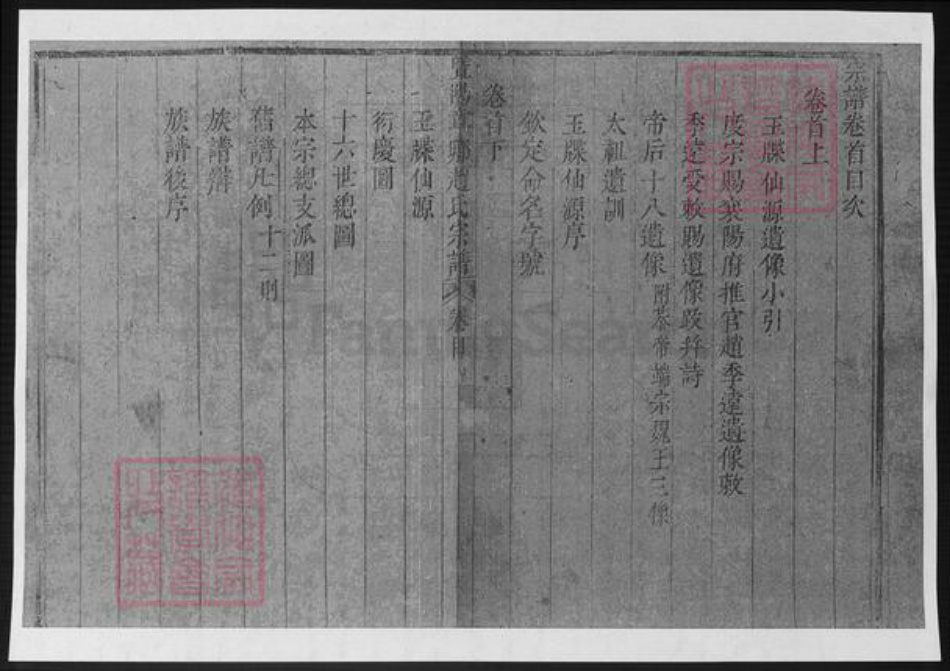 宗譜卷首目次
卷首上
玉牒仙源遺像小引
度宗賜襄陽府推官趙季逵遺像敕
季逵受敕賜遺像跋并詩
帝后十八遺像 附恭帝端宗魏王三像
太祖遺訓
玉牒仙源序
欽定命名字號
卷首下
暨陽 鄉趙氏宗譜 卷目
玉牒仙源
衍慶圖
十六世總圖
本宗總支派圖
舊譜凡例 十二則
族譜辯
族譜後序